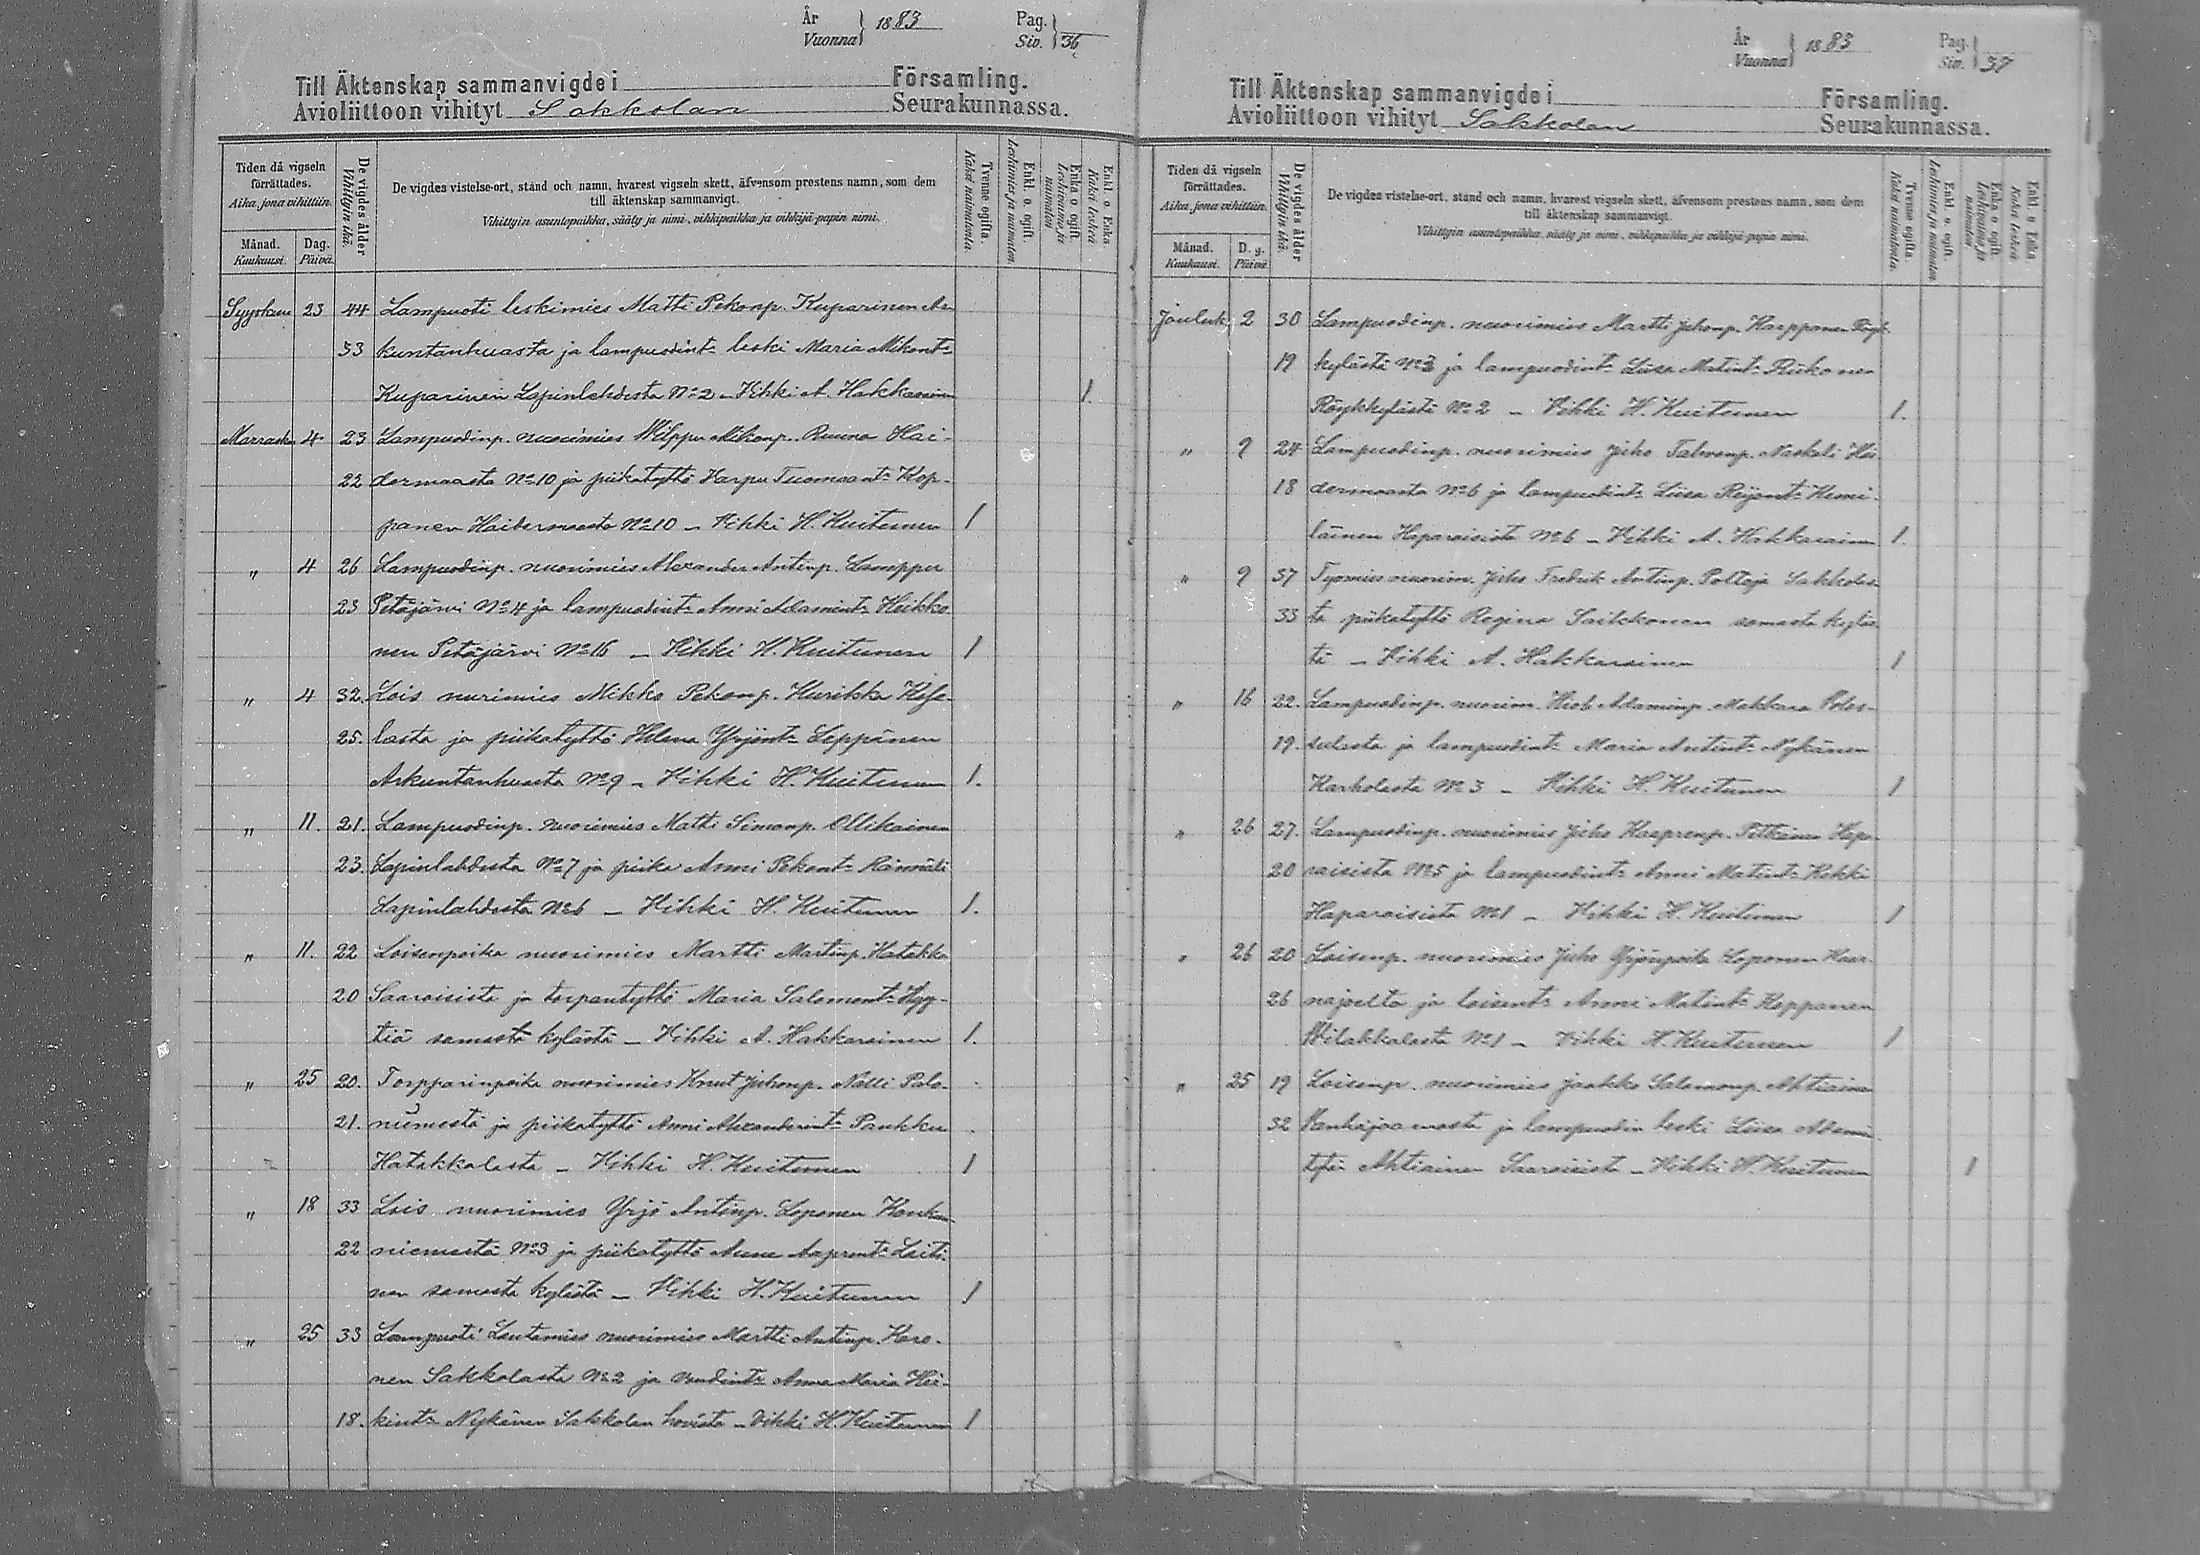 År
Vuonna } 1883
Pag.
Siv. } 36
Till Äktenskap sammanvigde i Församling.
Avioliittoon vihityt Sakkolan Seurakunnassa.
Tiden då vigseln förrättades.
Aika, jona vihittiin.
Månad.
Kuukausi.
Dag.
Päivä.
De vigdes ålder
Vihittyin ikä.
De vigdes vistelse-ort, stånd och namn, hvarest vigseln skett, äfvensom prestens namn, som dem
till äktenskap sammanvigt.
Vihittyin asuntopaikka, sääty ja nimi, vihkipaikka ja vihkijä-papin nimi.
Tvenne ogifta.
Kaksi naimatonta.
Enkl. o. ogift.
Leskimies ja naimaton.
Enka o. ogift.
Leskivaimo ja naimaton
Enkl. o. Enka
Kaksi leskeä
Syyskuu 23 44 Lampuoti leskimies Matti Pekanp. Kuparinen Ar
53 kuntanhuasta ja lampuodint: leski Maria Mikont:
Kuparinen Lapinlahdesta No 2 – Vihki A. Hakkarainen 1.
Marrask. 4 23 Lampuodinp. nuorimies Wilppu Mikonp. Ruuna Hai-
22 dermaasta No 10 ja piikatyttö Varpu Tuomaant: Kop-
panen Haitermaasta No 10 – Vihki H. Kuitunen 1
„ 4 26 Lampuodinp. nuorimies Alexander Antinp. Lamppu
23 Petäjärvi No 4 ja lampuodint: Anni Adamint: Heikko
nen Petäjärvi No 16 – Vihki H. Kuitunen 1
„ 4 32. Lois nurimies Mikko Pekanp. Hurikka
25. lasta ja piikatyttö Helena Yrjönt: Leppänen
Arkuntanhuasta No 9 – Vihki H. Kuitunen 1.
„ 11. 21. Lampuodinp. nuorimies Matti Simonp. Ollikainen
23. Lapinlahdesta No 7 ja piika Anni Pekant: Rännäli
Lapinlahdesta No 6 – Vihki H. Kuitunen 1.
„ 11. 22 Loisenpoika nuorimies Martti Martinp. Hatakka
20 Saaroisista ja torpantyttö Maria Salomont: Hyy-
tiä samasta kylästä – Vihki A. Hakkarainen 1.
„ 25 20. Torpparinpoika nuorimies Knut Juhonp. Nalli Palo-
21. niemestä ja piikatyttö Anni Alexanderint: Paukku
Hatakkalasta – Vihki H. Kuitunen 1
„ 18 33 Lois nuorimies Yrjö Antinp. Loponen
22 niemestä No 3 ja piikatyttö Anna Aapront: Laiti-
nen samasta kylästä – Vihki H. Kuitunen 1
„ 25 33 Lampuoti Lautamies nuorimies Martti Antinp. Karo-
nen Sakkolasta No 2 ja Anna Maria Hei-
18. kint: Nykänen Sakkolan hovista – Vihki H. Kuitunen 1
År
Vuonna } 1883
Pag.
Siv. } 37
Till Äktenskap sammanvigde i Församling.
Avioliittoon vihityt Sakkolan Seurakunnassa.
Tiden då vigseln förrättades.
Aika, jona vihittiin.
Månad.
Kuukausi.
D. g.
Päivä
De vigdes ålder
Vihittyin ikä.
De vigdes vistelse-ort, stånd och namn, hvarest vigseln skett, äfvensom prestens namn, som dem
till äktenskap sammanvigt.
Vihittyin asuntopaikka, sääty ja nimi, vihkipaikka ja vihkijä-papin nimi.
Tvenne ogifta.
Kaksi naimatonta.
Enkl. o. ogift.
Leskimies ja naimaton.
Enka o. ogift.
Leskivaimo ja naimaton
Enkl. o Enka
Kaksi leskeä
Jouluk. 2 30 Lampuodinp. nuorimies Martti Juhonp. Karpponen Röyk-
19 kylästä No 3 ja lampuodint: Liisa Matint: Riikonen
Röykkylästä No 2 – Vihki H. Kuitunen 1.
„ 9 24 Lampuodinp. nuorimies Juho Naskali Hai
18 dermaasta No 6 ja lampuodint: Liisa Kemi-
läinen Haparaisista No 6 – Vihki A. Hakkarainen 1.
„ 9 37 Työmies nuorim. Juho Fredrik Antinp. Polttaja Sakkolas-
33 ta piikatyttö Regina Saikkonen samasta kyläs
tä – Vihki A. Hakkarainen 1
„ 16 22. Lampuodinp. nuorim. Hiob Adaminp. Makkara
19. selasta ja lampuodint: Maria Antint: Nykänen
Karholasta No 3 – Vihki H. Kuitunen 1
„ 26 27. Lampuodinp. nuorimies Juho Kasprenp. Pitkänen Hapa-
20 raisista No 5 ja lampuodint: Anni Matint: Kekki
Haparaisista No 1 – Vihki H. Kuitunen 1
„ 26 20 Loisenp. nuorimies Juho Yrjönpoika Loponen Haa-
26 najoelta ja loisent: Anni Matint: Koppanen
Wilakkalasta No 1 – Vihki H. Kuitunen 1
„ 25 19 Loisenp. nuorimies Jaakko Salomonp. Ahtiainen
32 Vanhajaamasta ja lampuodin leski Liisa Adamin
tytär Ahtiainen Saaroisista – Vihki H. Kuitunen 1